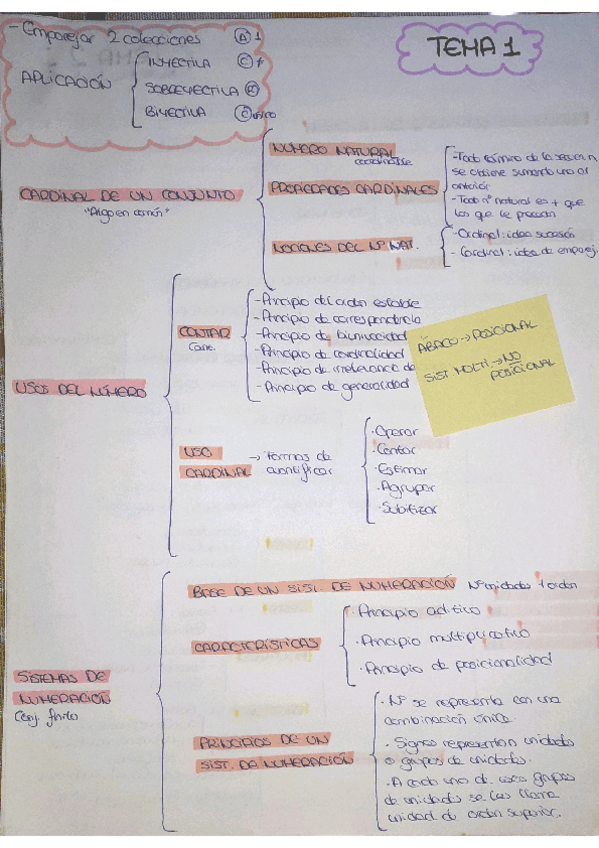 - Emparejar 2 colecciones
TEMA 1
APLICACIÓN
INYECTIVA
SOBREYECTIVA
BIYECTIVA
CARDINAL DE UN CONJUNTO
"Algo en común"
NÚMERO NATURAL
PROPIEDADES CARDINALES
- Todo término de la sucesión
se obtiene sumando uno al
anterior
- Todo nº natural es + que
los que le preceden
NOCIONES DEL Nº NAT.
- Ordinal: idea sucesión
- Cardinal: idea de emparej.
USOS DEL NÚMERO
CONTAR
- Principio del orden estable
- Principio de correspondencia
- Principio de biunivocidad
- Principio de cardinalidad
- Principio de irrelevancia de
- Principio de generalidad
ÁBACO → POSICIONAL
SIST. MULTI → NO
POSICIONAL
USO
CARDINAL
→ formas de
cuantificar
· Operar
· Contar
· Estimar
· Agrupar
· Subitizar
SISTEMAS DE
NUMERACIÓN
Conj. finito
BASE DE UN SIST. DE NUMERACIÓN Nº unidades 1 orden
CARACTERÍSTICAS
· Principio aditivo
· Principio multiplicativo
· Principio de posicionalidad
PRINCIPIOS DE UN
SIST. DE NUMERACIÓN
· Nº se representa con una
combinación única.
· Signos representan unidades
o grupos de unidades.
· A cada uno de esos grupos
de unidades se les llama
unidad de orden superior.